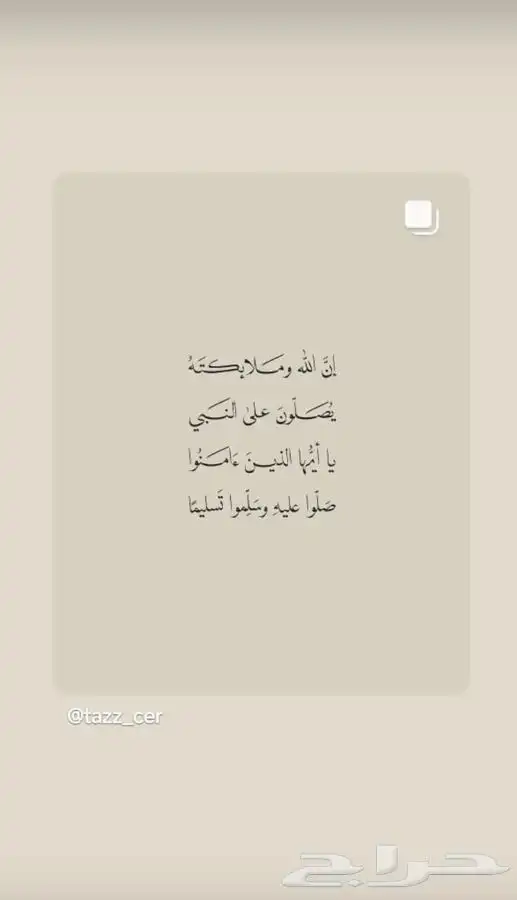 إنَّ الله ومَـلايـكـتَـهُ
يُصَـلّونَ علىٰ النَـبي
يا أيُّها الذيـنَ ءَامَـنُوا
صَلّوا عليهِ وسَلِّموا تَسليمًا
@tazz_cer
حراج